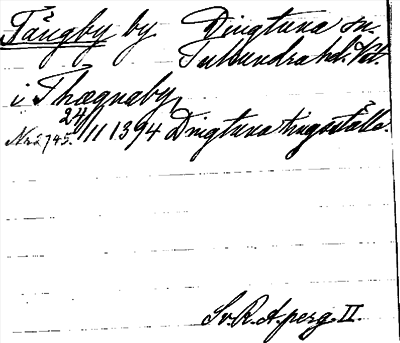 Tångby by Dingtuna sn.
Tuhundra hd. Vstm.
i Thægnaby
Nr 2745. 24/11 1394 Dingtuna tingställe.
Sv. R. A. perg. II.